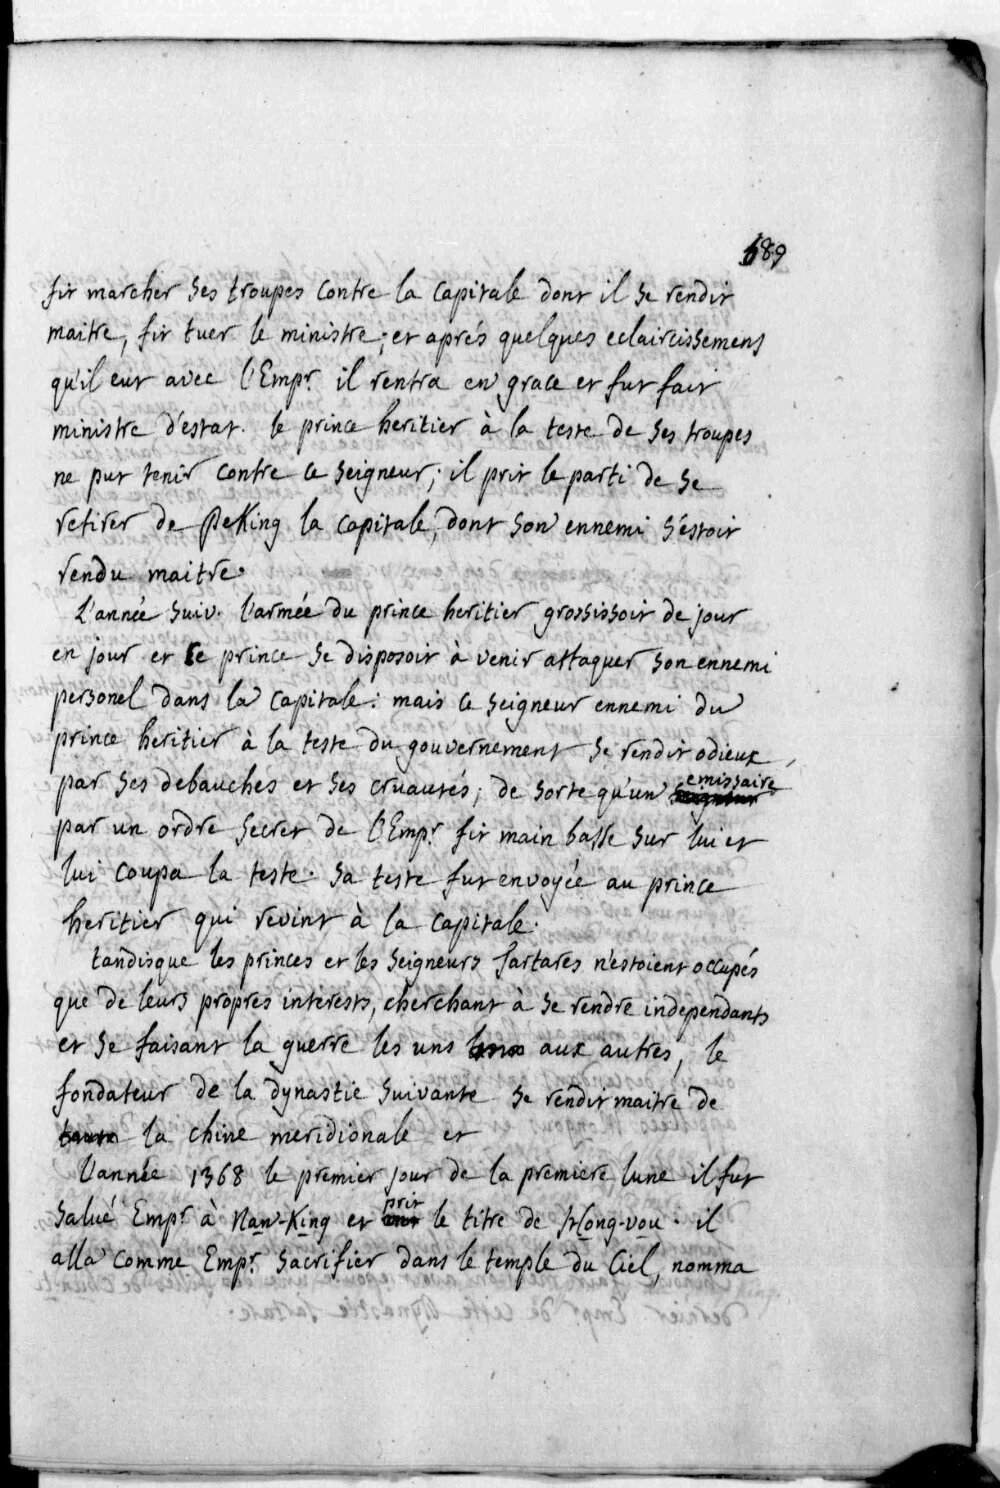 689
fit marcher ses troupes contre la capitale dont il se rendit
maitre, fit tuer le ministre; et aprés quelques eclaircissemens
qu'il eut avec l'Empr. il rentra en grace et fut fait
ministre d'estat. le prince heritier à la teste de ses troupes
ne put tenir contre ce seigneur; il prit le parti de se
retirer de PeKing la capitale, dont son ennemi s'estoit
rendu maitre.
L'année suiv. l'armée du prince heritier grossissoit de jour
en jour et ce prince se disposoit à venir attaquer son ennemi
personel dans la capitale: mais ce seigneur ennemi du
prince heritier à la teste du gouvernement se rendit odieux
par ses debauches et ses cruautés; de sorte qu'un emissaire
par un ordre secret de l'Empr. fit main basse sur lui et
lui coupa la teste. sa teste fut envoyée au prince
heritier qui revint à la capitale.
tandisque les princes et les seigneurs tartares n'estoient occupés
que de leurs propres interests, cherchant à se rendre independants
et se faisant la guerre les uns aux autres, le
fondateur de la dynastie suivante se rendit maitre de
la chine meridionale et
l'année 1368 le premier jour de la premiere lune il fut
salué Empr. à Nan-King et prit le titre de Hong-vou. il
alla comme Empr. sacrifier dans le temple du Ciel, nomma